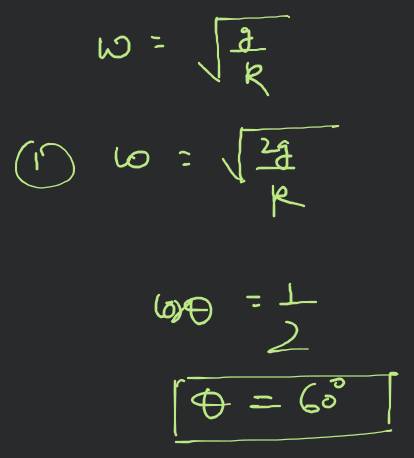 ω = √(g/R)
① ω = √(2g/R)
cosθ = 1/2
θ = 60°